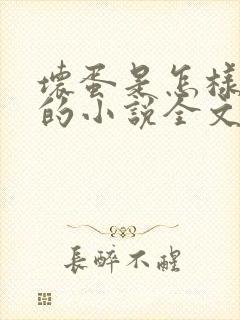 壞蛋是怎樣
的小說全文
長醉不醒